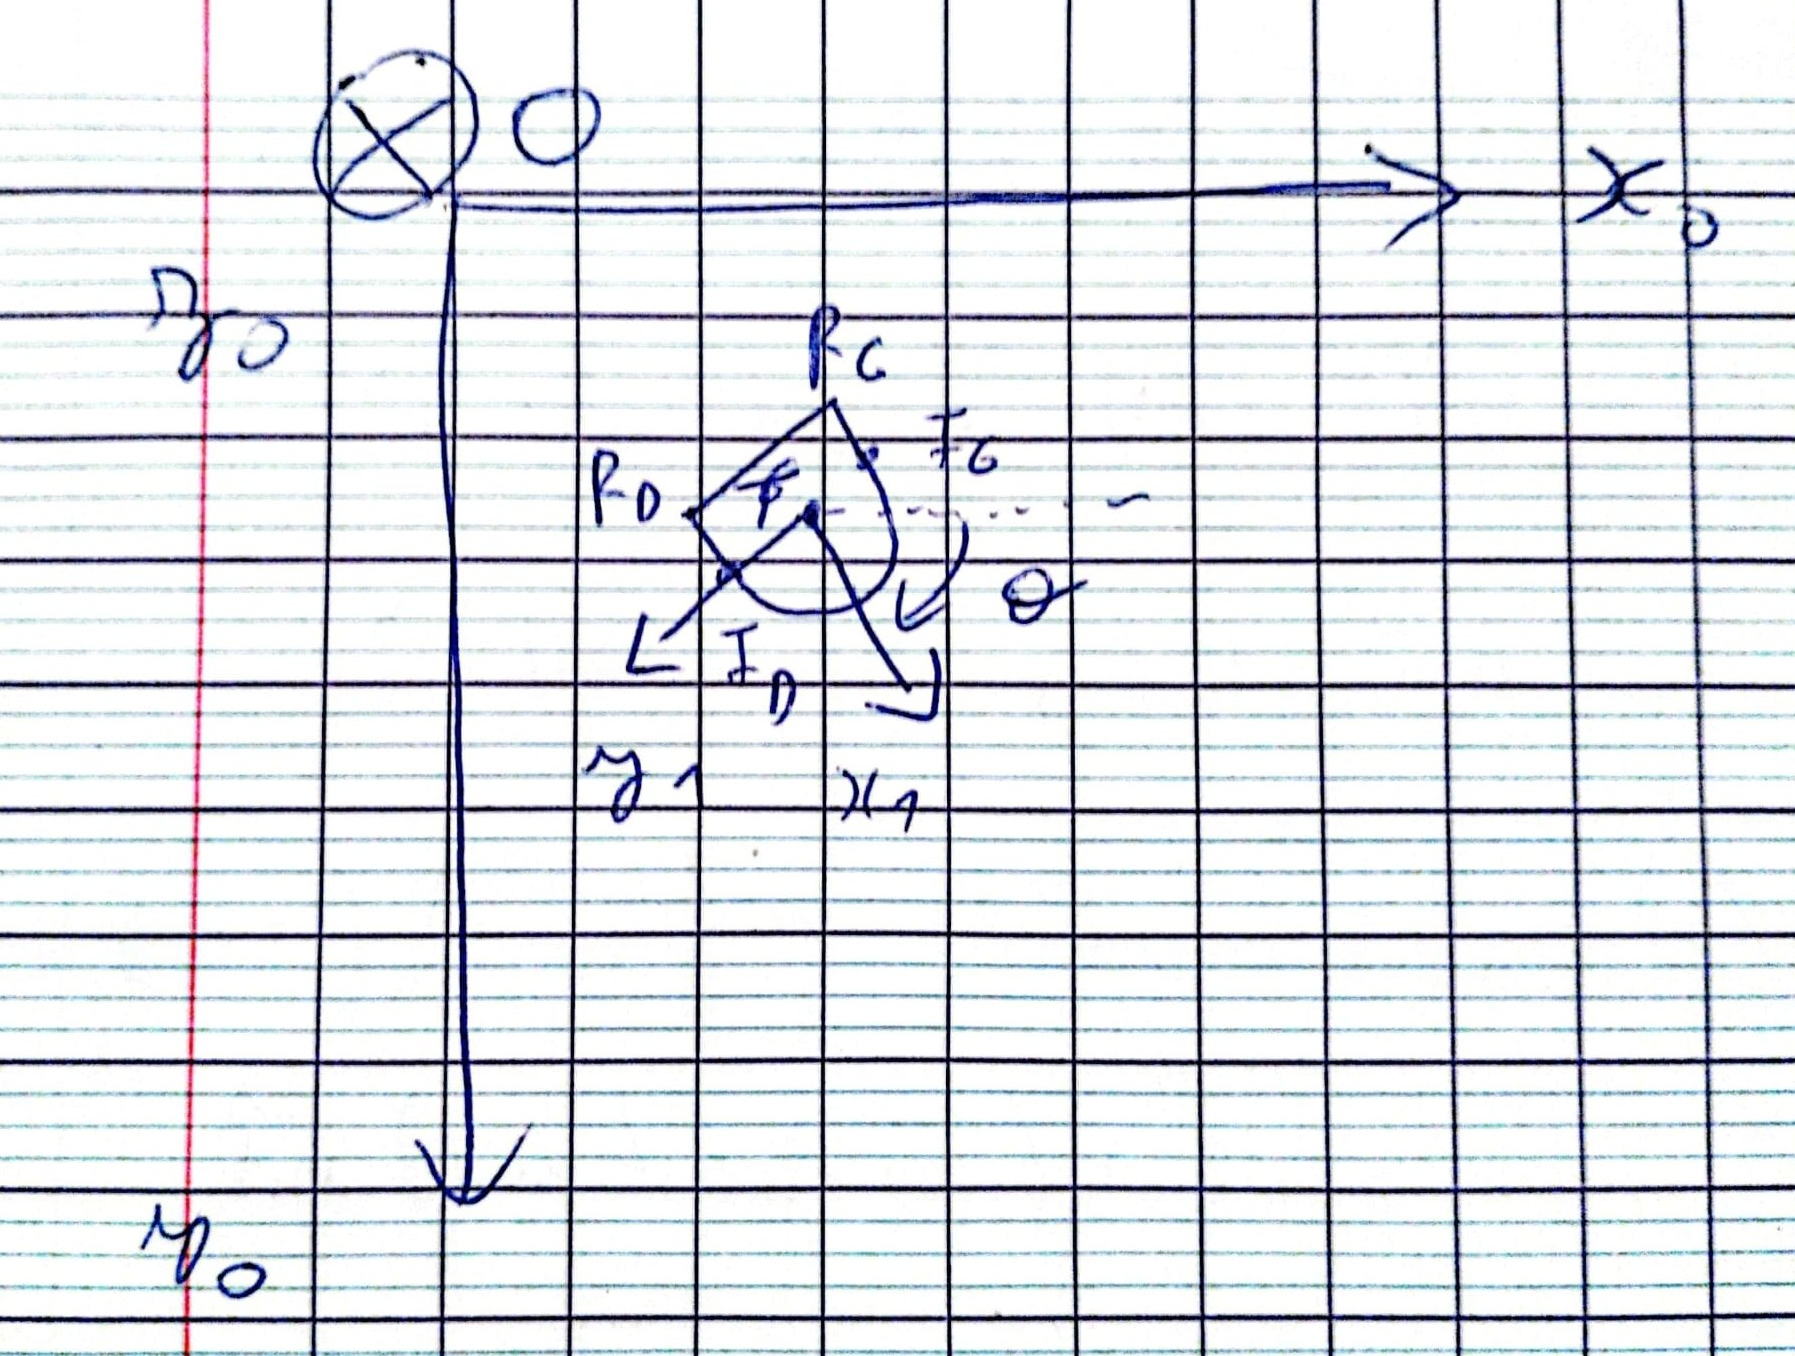 O
x₀
z₀
R_G
I_G
R_D
θ
I_D
y₁
x₁
y₀